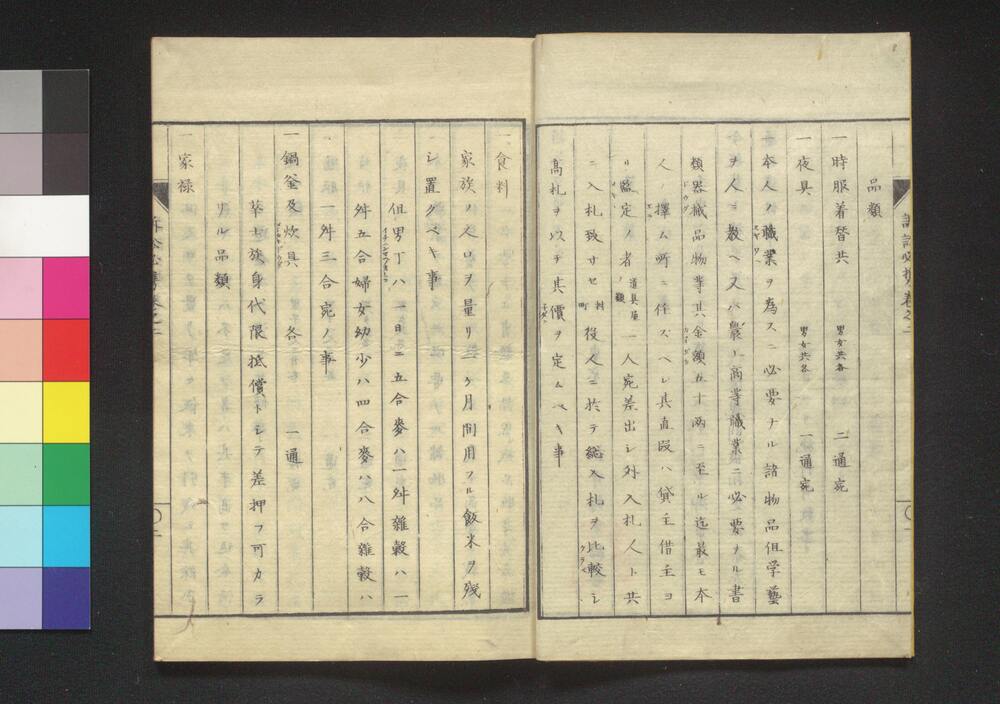 品類
一時服着替共 男女共各 二通宛
一夜具 男女共各 一通宛
本人ノ職業ヲ為スニ必要ナル諸物品但学藝
ヲ人ニ教ヘ又ハ農工商等職業ニ必要ナル書
類器械品物等其金額五十両ニ至ル迄最モ本
人ノ擇ム所ニ任スヘシ其直段ハ貸主借主ヨ
リ鑑定ノ者 道具屋ノ類 一人宛差出シ外入札人ト共
ニ入札致サセ村町役人ニ於テ総入札ヲ比較シ
高札ヲ以テ其價ヲ定ムヘキ事
一食料
家族ノ人口ヲ量リ一ケ月間用フル飯米ヲ残
シ置クベキ事
但男丁ハ一日ニ五合麥ハ一舛雜穀ハ一
舛五合婦女幼少ハ四合麥ハ八合雜穀ハ
一舛三合宛ノ事
一鍋釜及炊具 各一通
華士族身代限抵償トシテ差押フ可カラ
サル品類
一家禄